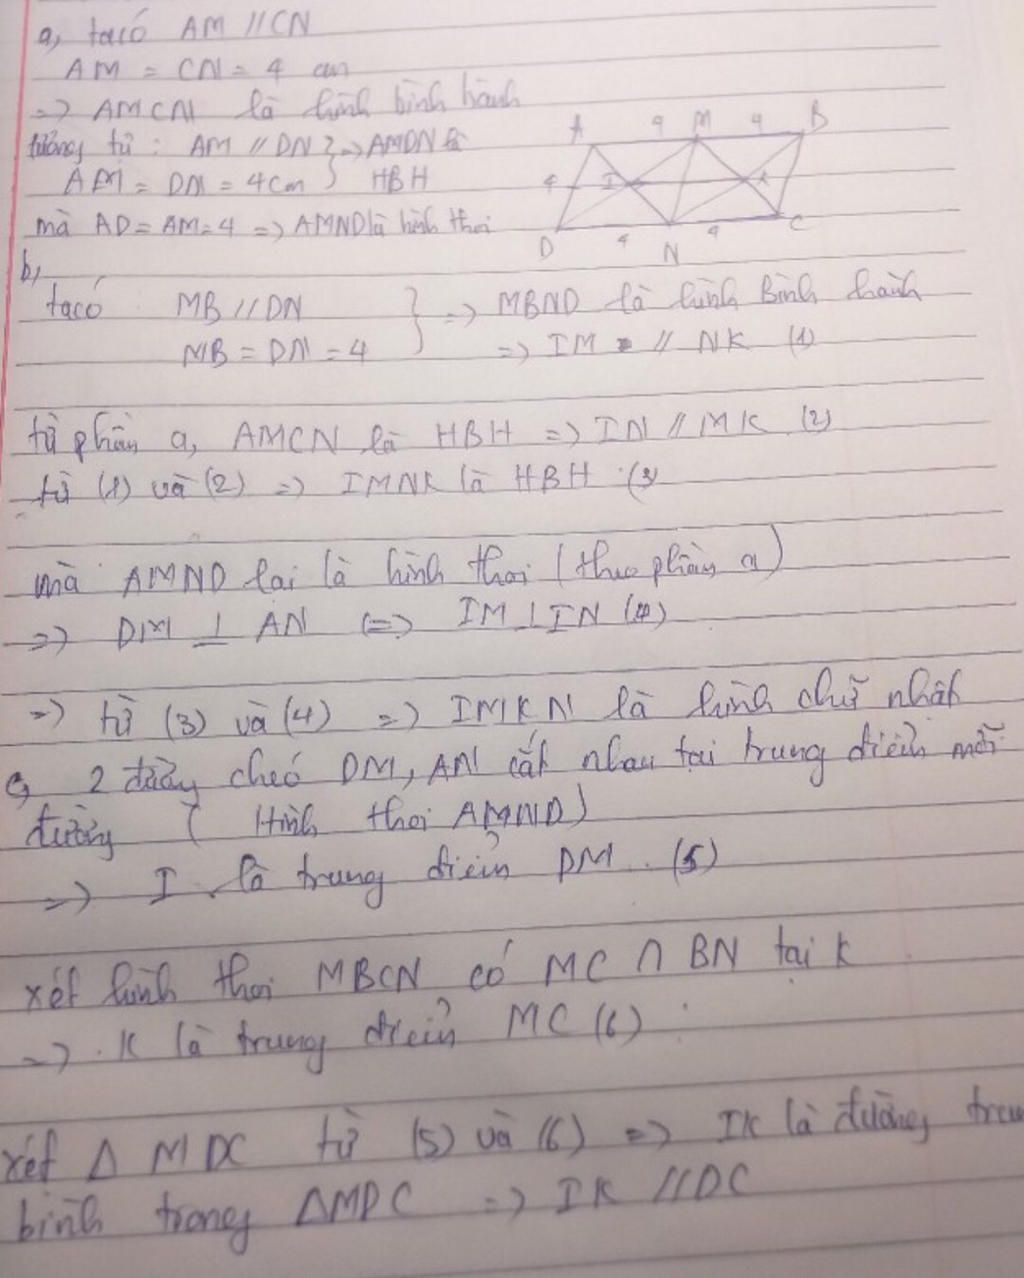 a, ta có AM // CN
AM = CN = 4 cm
=> AMCN là hình bình hành
tương tự : AM // DN } => AMDN là
AM = DN = 4cm } HBH
mà AD = AM = 4 => AMND là hình thoi
A 4 M 4 B
4 I K
D 4 N 4 C
b,
ta có MB // DN } => MBND là hình Bình hành
MB = DN = 4 => IM // NK (1)
từ phần a, AMCN là HBH => IN // MK (2)
từ (1) và (2) => IMNK là HBH (3
mà AMND lại là hình thoi (theo phần a)
=> DM ⊥ AN (=> IM ⊥ IN (4)
=> từ (3) và (4) => IMKN là hình chữ nhật
c, 2 đường chéo DM, AN cắt nhau tại trung điểm mỗi
đường ( Hình thoi AMND)
=> I là trung điểm DM . (5)
xét hình thoi MBCN có MC ∩ BN tại K
=> . K là trung điểm MC (6)
xét Δ MDC từ (5) và (6) => IK là đường tru
bình trong ΔMDC => IK // DC